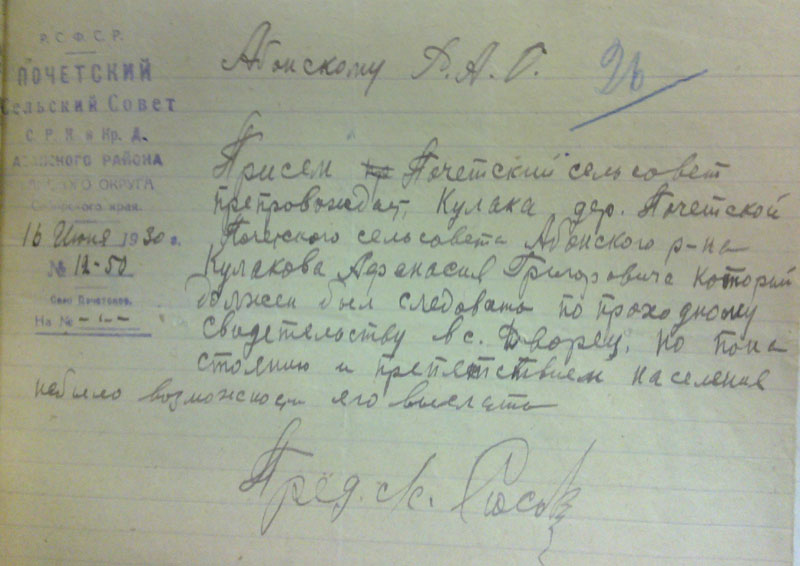 Р.С.Ф.С.Р.
ПОЧЕТСКИЙ
Сельский Совет
С. Р. К. и Кр. Д.
АБАНСКОГО РАЙОНА
КАНСКОГО ОКРУГА
Сибирского края.
16 Июня 1930 г.
№ 12-50
Село Почетское.
На №
Абонскому Р.А.О.
26
Присем Почетский сельсовет
препровождает, Кулака дер. Почетской
Почетского сельсовета Абонского р-на
Кулакова Афанасия Григоровича который
должен был следовать по проходному
свидетельству в с. Дворец, но пона
стоянию и препетствием населения
небыло возможности его выслать
Пред. с.